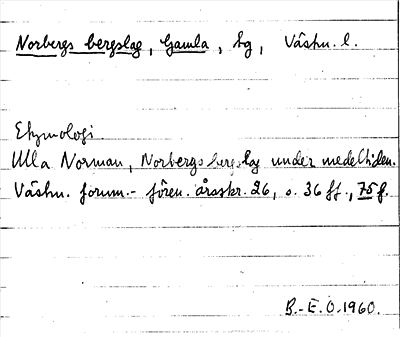 Norbergs bergslag, Gamla, bg, Västm. l.
Etymologi.
Ulla Norman, Norbergs bergslag under medeltiden.
Västm. fornm.- fören. årsskr. 26, s. 36 ff., 75 f.
B.-E. O. 1960.